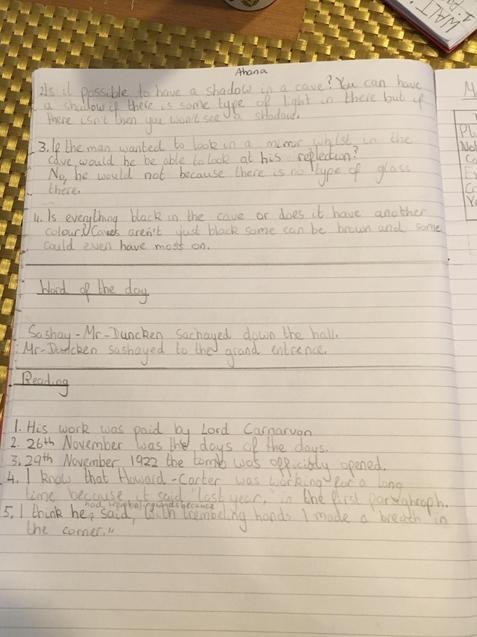 Ahana
2. Is it possible to have a shadow in a cave? You can have
a shadow if there is some type of light in there but if
there isn't then you won't see a shadow.
3. If the man wanted to look in a mirror whilst in the
cave, would he be able to look at his reflection?
No, he would not because there is no type of glass
there.
4. Is everything black in the cave or does it have another
colour? Caves aren't just black some can be brown and some
could even have moss on.
Word of the day
Sashay - Mr-Duncken sachayed down the hall.
Mr-Duncken sashayed to the grand entrence.
Reading
1. His work was paid by Lord Carnarvon
2. 26th November was the days of the days.
3. 29th November 1922 the tomb was officially opened.
4. I know that Howard-Carter was working for a long
time because it said "last year," in the first paragraph.
had trembling hands because
5. I think he said, "With trembeling hands I made a breath in
the corner."
WALT: